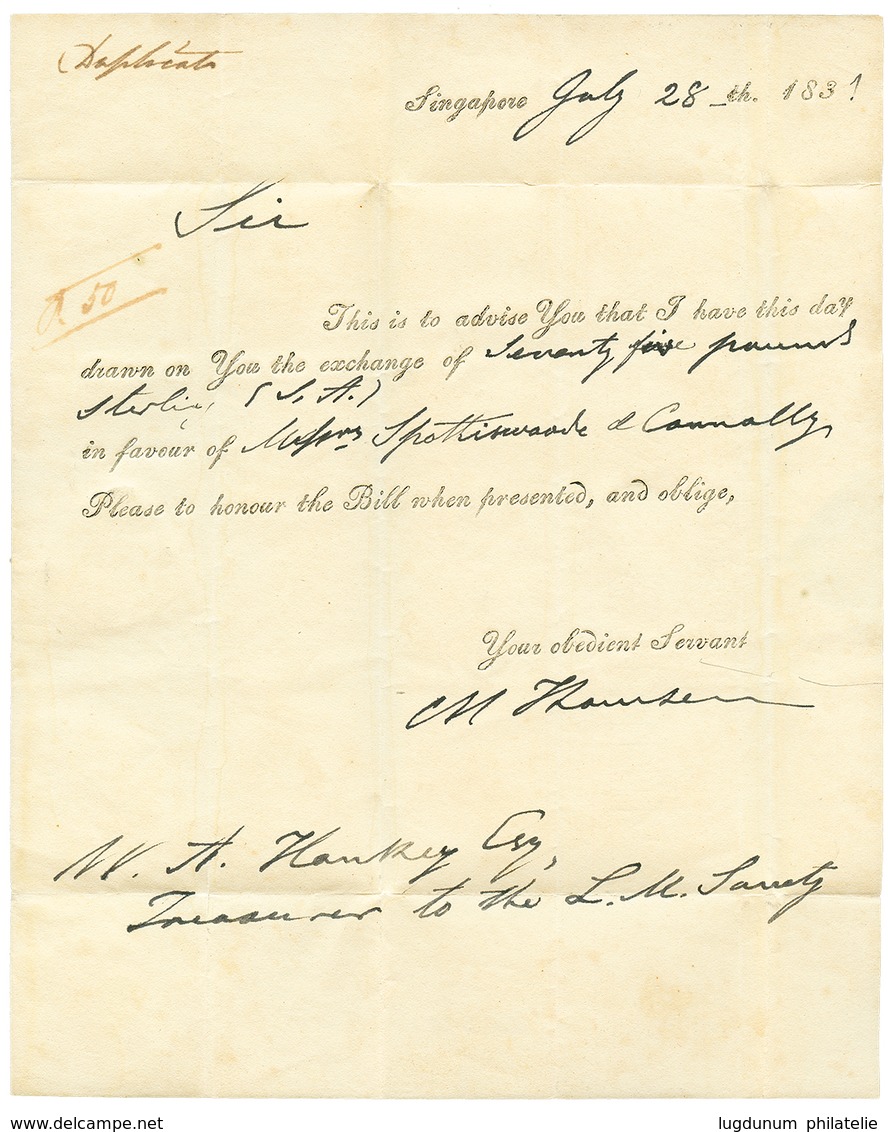 Duplicate
Singapore July 28th. 1831
Sir
50
This is to advise You that I have this day
drawn on You the exchange of Seventy five pounds
Sterling (S. A.)
in favour of Messrs Spottiswoode & Connolly
Please to honour the Bill when presented, and oblige,
Your obedient Servant
Thomsen
W. A. Hankey Esq,
Treasurer to the L. M. Society
www.delcampe.net
lugdunum philatelie